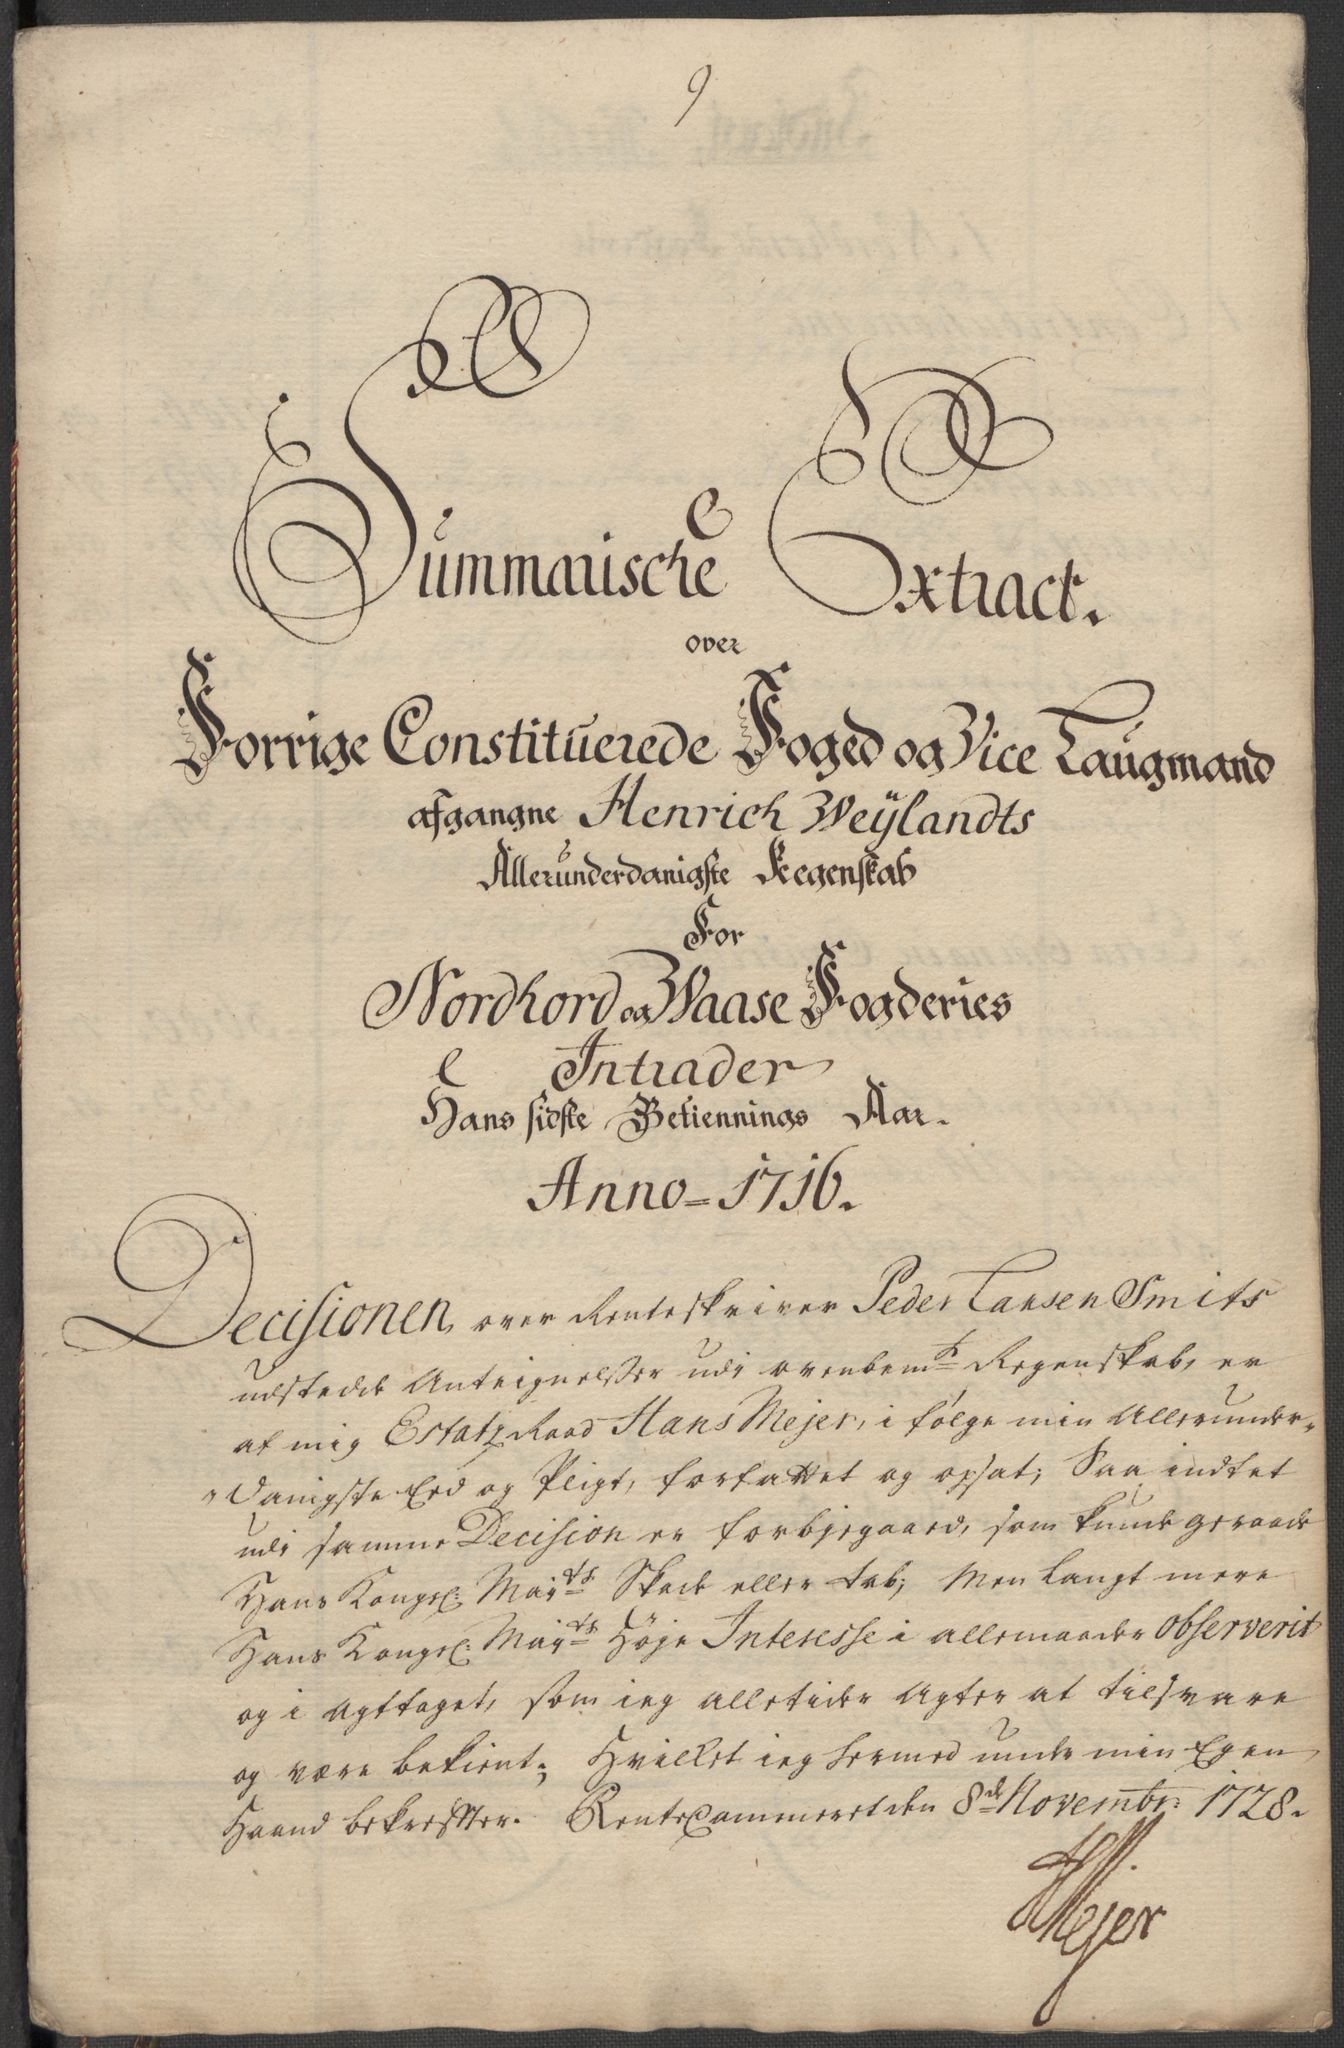 9
Summarische Extract.
over
Forrige Constituerede Foged og Vice Laugmand
afgangne Henrich Weÿlandts
Allerunderdanigste Regenskab
For
Nordhord og Waase Fogderies
Intrader
Hans sidste Betiennings Aar.
Anno = 1716.
Decisionen over Renteskriver Peder Larsen Smits
udstedde Anteignelsser udi ovenbemte Regenskab, er
af mig Estatz Raad Hans Mejer, i følge min Allerunder-
danigste Eed og Pligt, forfattet og opsat; Saa indtet
udi samme Decision er forbjegaaed, som kunde geraade
Hans Kongel: Mayts Skade eller tab; Men langt mere
Hans Kongel: Mayts Høje Interesse i allemaader observerit
og i agttaget, som ieg alletider Agter at tilsvare
og være bekient; Hvilket ieg hermed under min Egen
Haand bekreffter. RenteCammeret den 8de Novembr: 1728.
HMejer